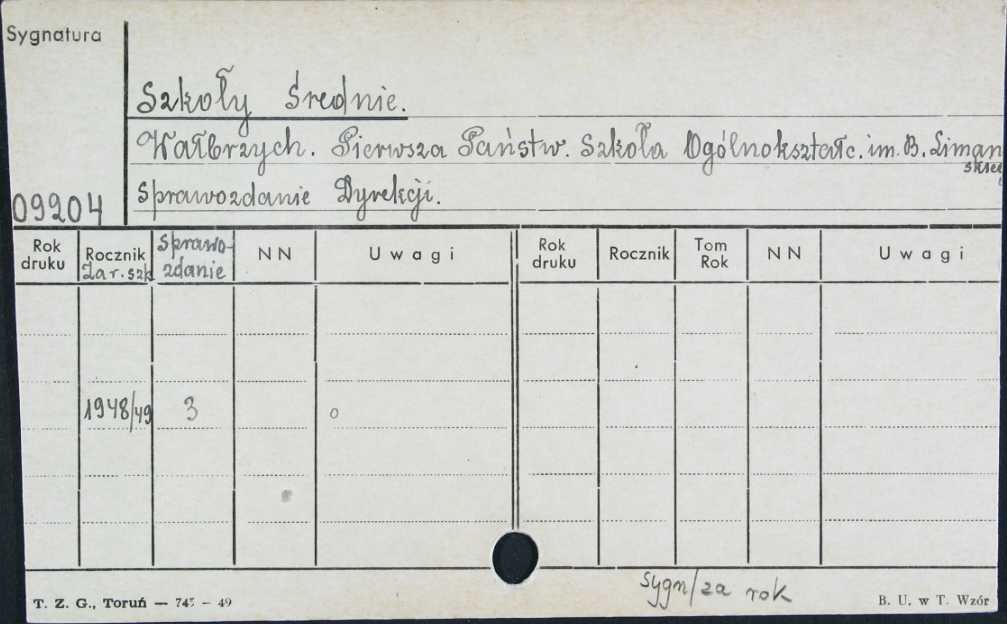 Sygnatura
Szkoły Średnie.
Wałbrzych. Pierwsza Państw. Szkoła Ogólnokształc. im. B. Liman
Sprawozdanie Dyrekcji.
09204
Rok druku Rocznik Za r. szk Sprawo-zdanie NN Uwagi Rok druku Rocznik Tom Rok NN Uwagi
1948/49 3 o
sygn/za rok
T. Z. G., Toruń — 745 – 49 B. U. w T. Wzór